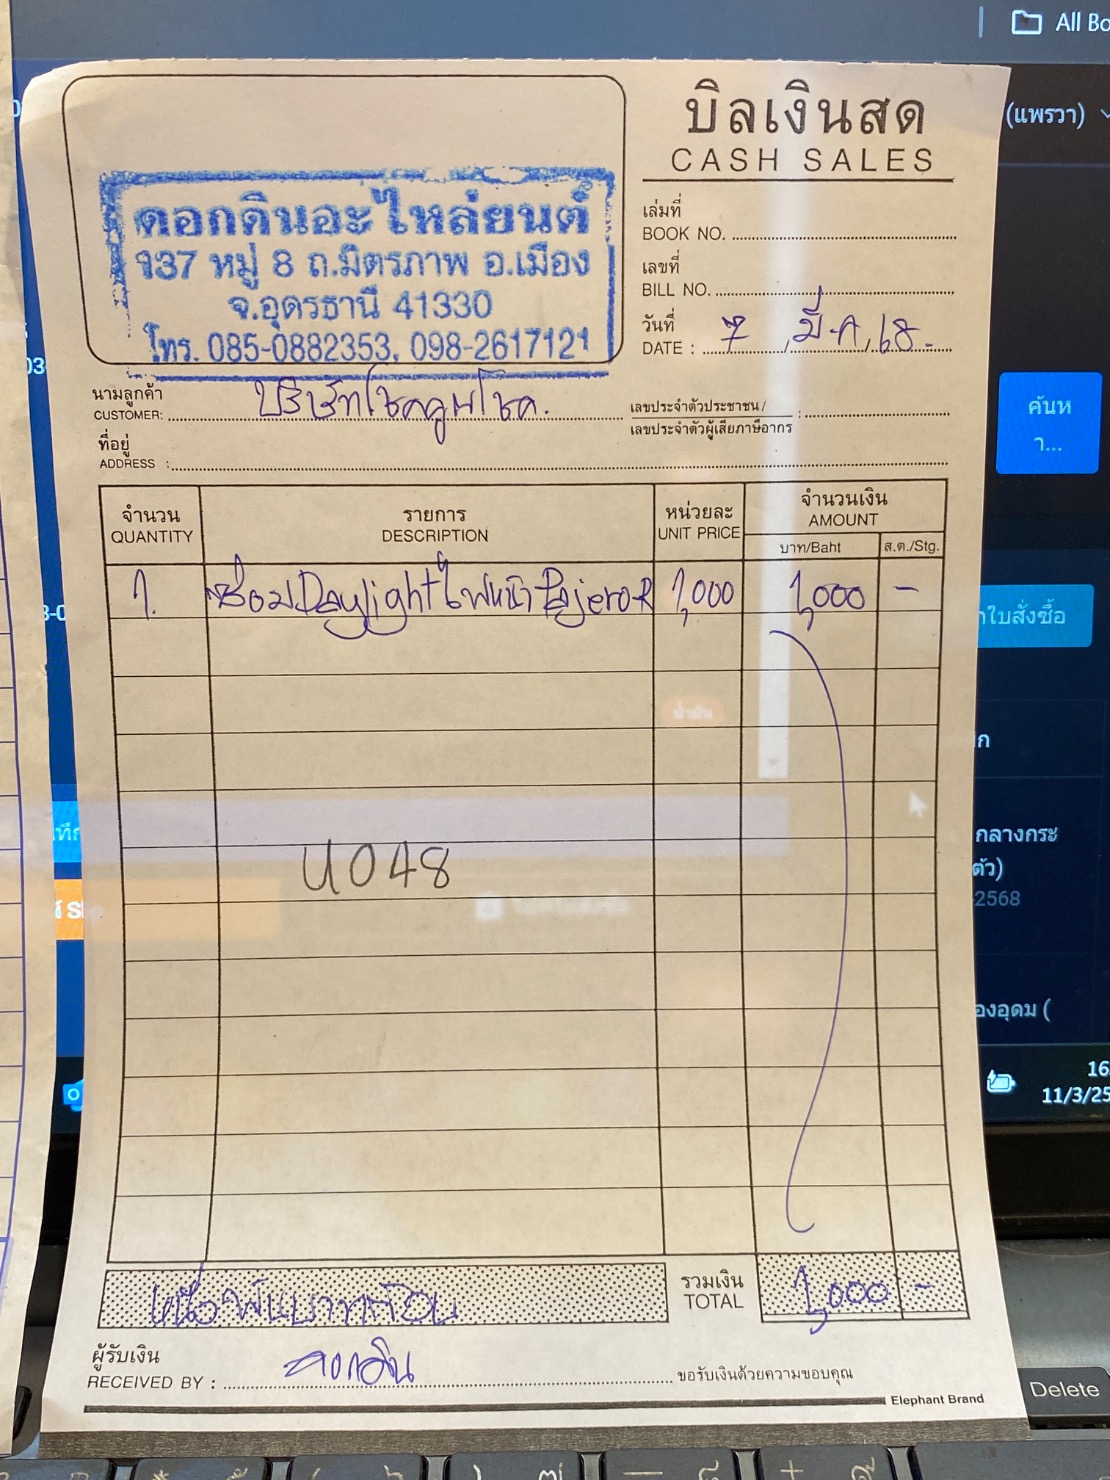 All Bo
(แพรวา)
บิลเงินสด
CASH SALES
ดอกดินอะไหล่ยนต์
137 หมู่ 8 ถ.มิตรภาพ อ.เมือง
จ.อุดรธานี 41330
โทร. 085-0882353, 098-2617121
เล่มที่
BOOK NO.
เลขที่
BILL NO.
วันที่
DATE : 7 มี.ค. 68
นามลูกค้า
CUSTOMER: บริษัทโชคคูนโชค.
เลขประจำตัวประชาชน /
เลขประจำตัวผู้เสียภาษีอากร :
ที่อยู่
ADDRESS :
ค้นห
า...
จำนวน
QUANTITY
รายการ
DESCRIPTION
หน่วยละ
UNIT PRICE
จำนวนเงิน
AMOUNT
บาท/Baht
ส.ต./Stg.
1. ซ่อมDaylightไฟหน้า Pajero 1,000 1,000 -
ใบสั่งซื้อ
U048
กลางกระ
ตัว)
2568
องอุดม (
16
11/3/25
หนึ่งพันบาทถ้วน
รวมเงิน
TOTAL
1,000 -
ผู้รับเงิน
RECEIVED BY : ดอกดิน
ขอรับเงินด้วยความขอบคุณ
Elephant Brand
Delete